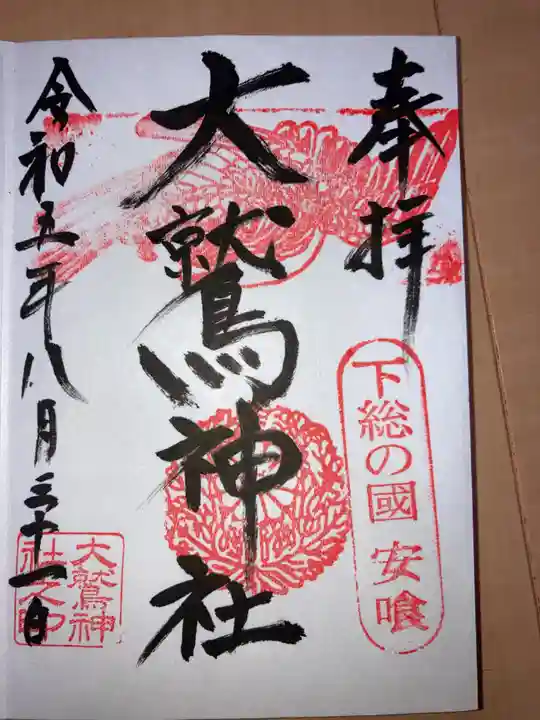 奉拝
下総の國 安喰
大鷲神社
令和五年八月三十一日
大鷲神
社之印